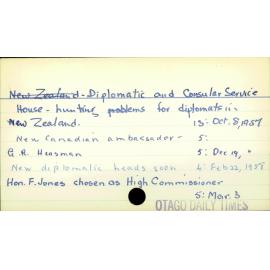 New Zealand - Diplomatic and Consular Service
House-hunting problems for diplomats in
New Zealand. 13: Oct. 8, 1957
New Canadian ambassador - 5:
G.R. Heasman 5: Dec 19, "
New diplomatic heads soon 4: Feb 22, 1958
Hon. F. Jones chosen as High Commissioner
5: Mar. 3
OTAGO DAILY TIMES